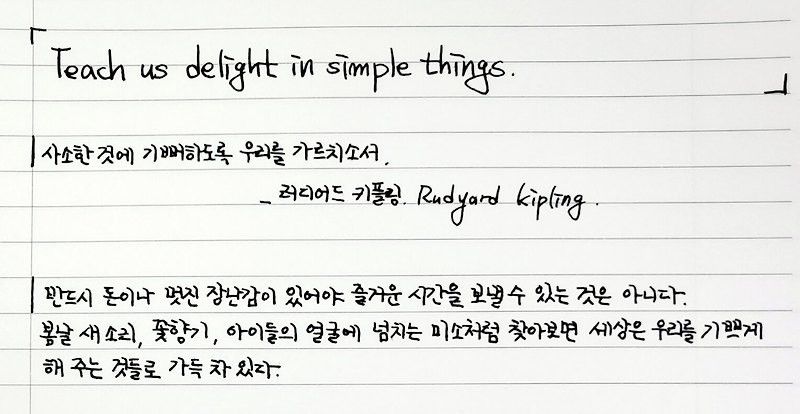 「Teach us delight in simple things.」
사소한 것에 기뻐하도록 우리를 가르치소서.
_ 러디어드 키플링. Rudyard kipling.
반드시 돈이나 멋진 장난감이 있어야 즐거운 시간을 보낼 수 있는 것은 아니다.
봄날 새소리, 꽃향기, 아이들의 얼굴에 넘치는 미소처럼 찾아보면 세상은 우리를 기쁘게
해 주는 것들로 가득 차 있다.